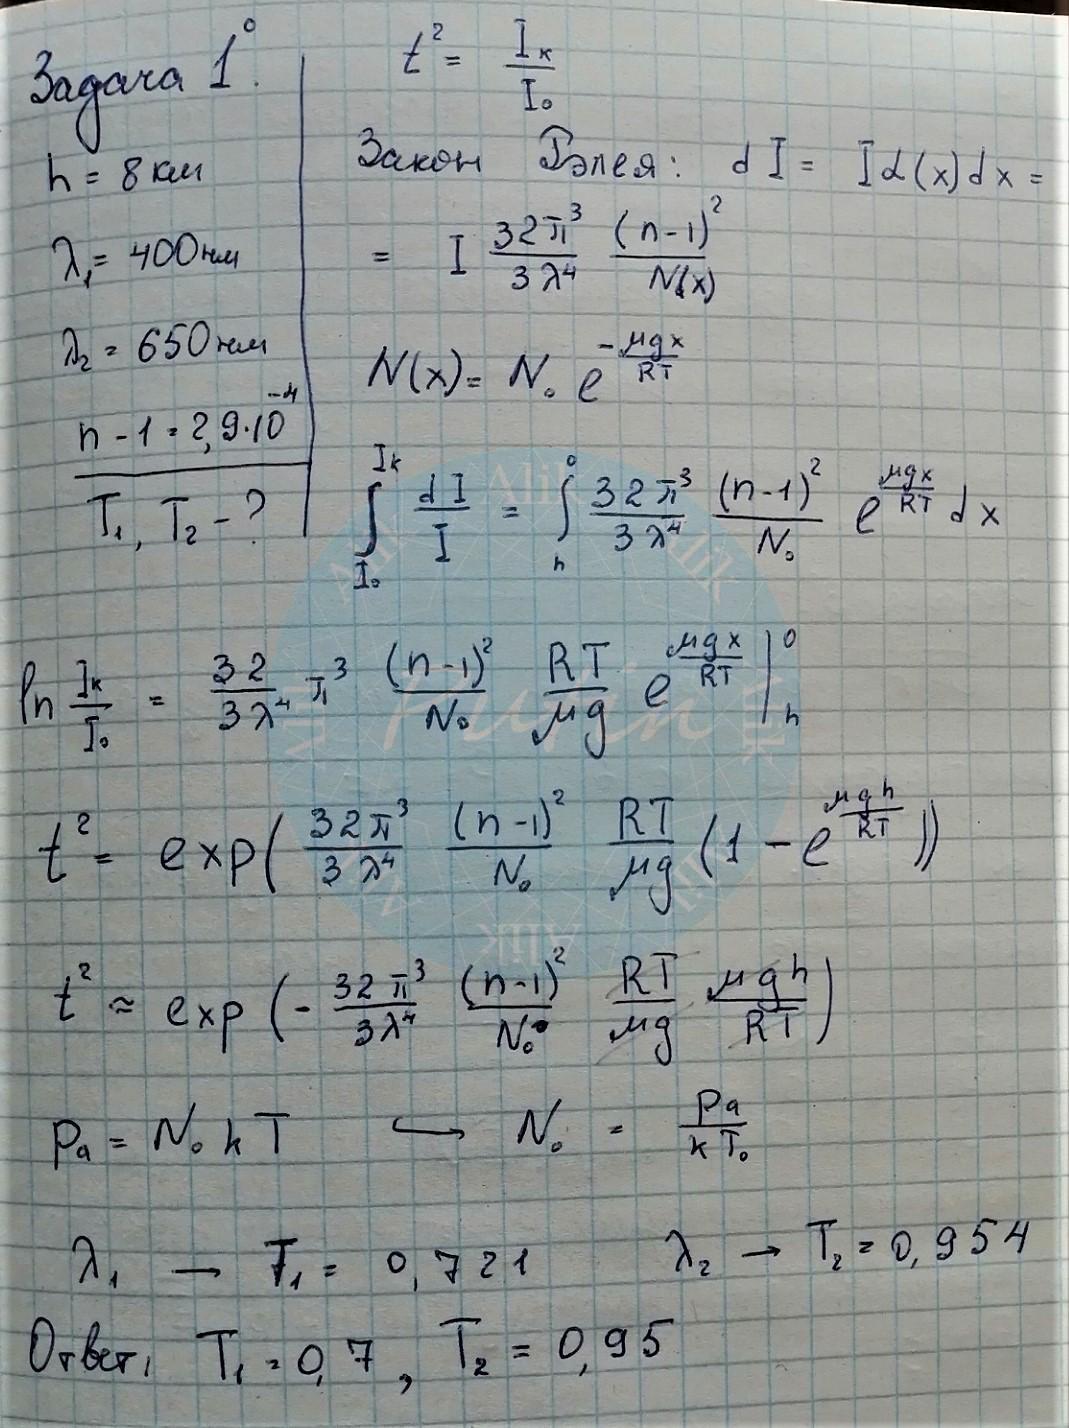 Задача 1°.
h = 8 км
λ₁ = 400 нм
λ₂ = 650 нм
n - 1 = 2,9·10⁻⁴
T₁, T₂ - ?
t² = Iₖ/I₀
Закон Рэлея: dI = Iα(x)dx =
= I 32π³/3λ⁴ (n-1)²/N(x)
N(x) = N₀ e^(-μgx/RT)
∫_{I₀}^{Iₖ} dI/I = ∫_h^0 32π³/3λ⁴ (n-1)²/N₀ e^(μgx/RT) dx
ln Iₖ/I₀ = 32/3λ⁴ π³ (n-1)²/N₀ RT/μg e^(μgx/RT) |_h^0
t² = exp(32π³/3λ⁴ (n-1)²/N₀ RT/μg (1 - e^(μgh/RT)))
t² ≈ exp(-32π³/3λ⁴ (n-1)²/N₀ RT/μg μgh/RT)
Pa = N₀kT ↪ N₀ = Pa/kT₀
λ₁ → T₁ = 0,721 λ₂ → T₂ = 0,954
Ответ: T₁ = 0,7, T₂ = 0,95
Alik
Alik
Alik
Alik